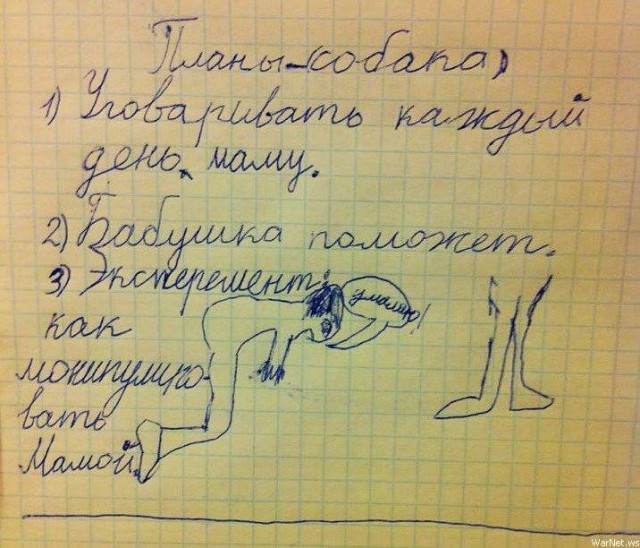 Планы-(собака)
1) Уговаривать каждый
день маму.
2) Бабушка поможет.
3) Эксперемент:
умоляю!
как
монипулиро-
вать
Мамой.
WarNet.ws